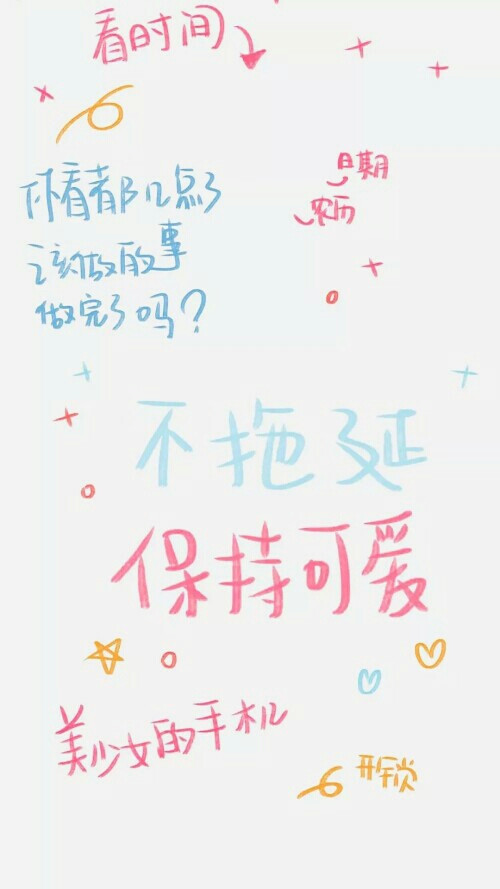 看时间
日期
农历
你看看都几点了
该做的事
做完了吗？
不拖延
保持可爱
美少女的手机
开锁